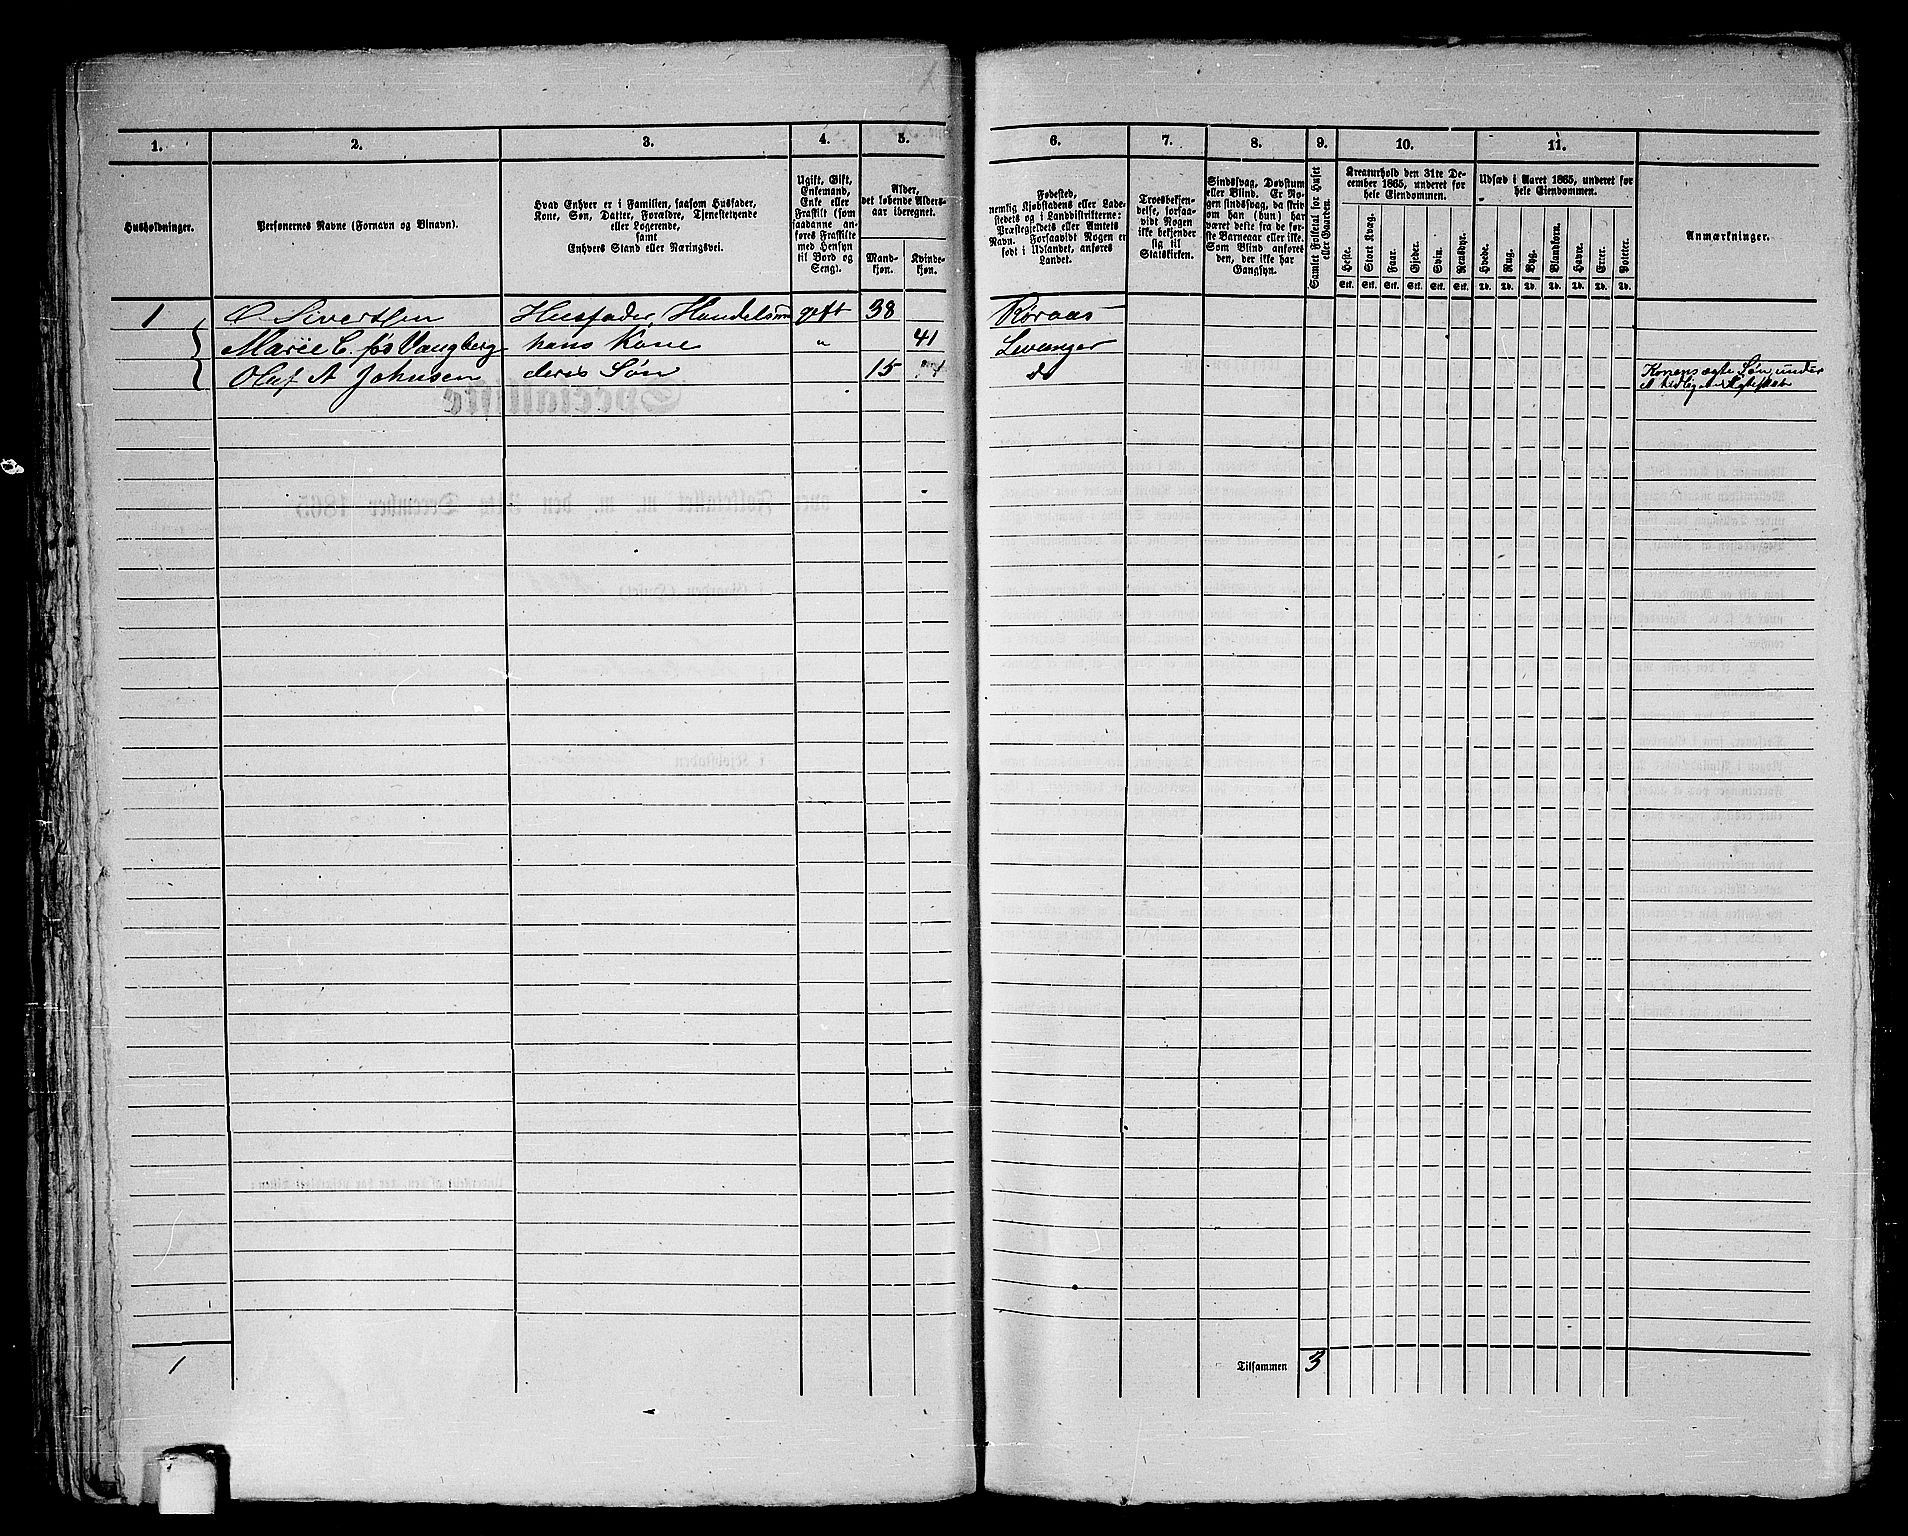 1. 2. 3. 4. 5. 6. 7. 8. 9. 10. 11.
Husholdninger.
Personernes Navne (Fornavn og Binavn).
Hvad Enhver er i Familien, saasom Husfader,
Kone, Søn, Datter, Forældre, Tjenestetyende
eller Logerende,
samt
Enhvers Stand eller Næringsvei.
Ugift, Gift,
Enkemand,
Enke eller
Fraskilt (som
saadanne an-
føres Fraskilte
med Hensyn
til Bord og
Seng).
Alder,
det løbende Alders-
aar iberegnet.
Mand-
kjøn.
Kvinde-
kjøn.
Fødested,
nemlig Kjøbstadens eller Lade-
stedets og i Landdistrikterne:
Præstegjeldets eller Amtets
Navn. Forsaavidt Nogen er
født i Udlandet, anføres
Landet.
Troesbekjen-
delse, forsaa-
vidt Nogen
ikke bekjender
sig til
Statskirken.
Sindssvag, Døvstum
eller Blind. Er No-
gen sindssvag, da skriv
om han (hun) har
været dette fra de før-
ste Barneaar eller ikke.
Som Blind anføres
den, der ikke har
Gangsyn.
Samlet Folketal for Huset
eller Gaarden.
Kreaturhold den 31te De-
cember 1865, underet for
hele Eiendommen.
Heste. Stort Kvæg. Faar. Gjeder. Svin. Rensdyr.
Stk. Stk. Stk. Stk. Stk. Stk.
Udsæd i Aaret 1865, underet for
hele Eiendommen.
Hvede. Rug. Byg. Blandkorn. Havre. Erter. Poteter.
Td. Td. Td. Td. Td. Td. Td.
Anmærkninger.
1 Sivertsen Husfader Handelsm gift 38 Røraas
Marie C. fød Vangberg hans Kone " 41 Levanger
Oluf A Johnsen deres Søn 15 do Konens ægte Søn, under
Tilsammen 3
1